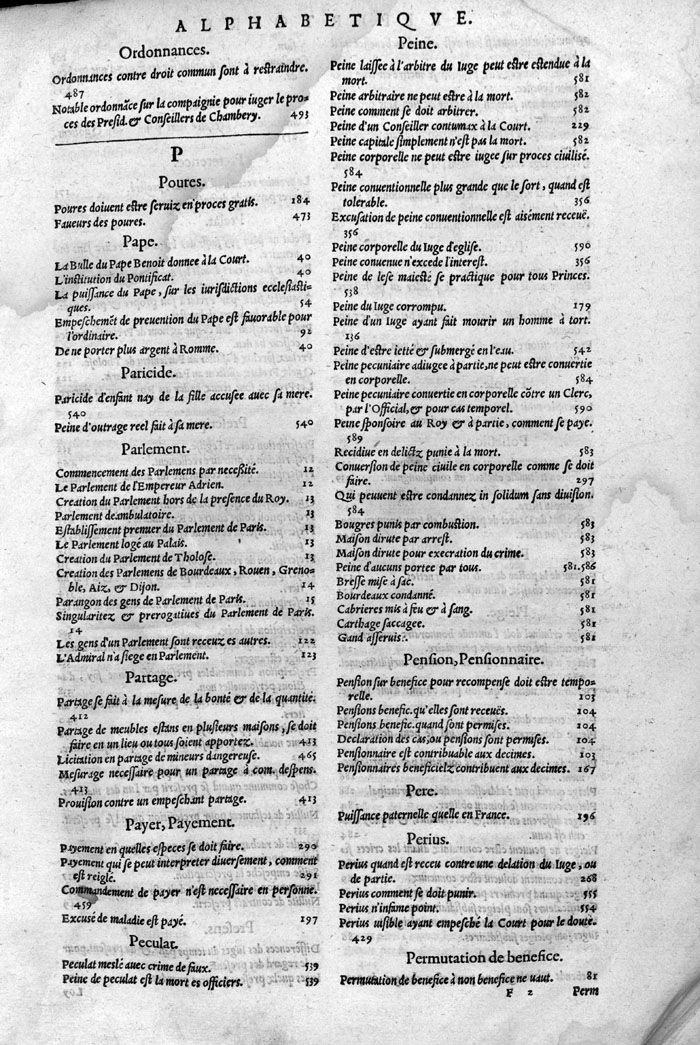 ALPHABETIQVE.
Ordonnances.
Ordonnances contre droit commun sont à restraindre.
487
Notable ordonnāce sur la compaignie pour iuger le pro-
ces des Presid. & Conseillers de Chambery. 493
P
Poures.
Poures doiuent estre seruiz en proces gratis. 184
Faueurs des poures. 473
Pape.
La Bulle du Pape Benoit donnee à la Court. 40
L'institution du Pontificat. 40
La puissance du Pape, sur les iurisdictions ecclesiasti-
ques. 54
Empeschemēt de preuention du Pape est fauorable pour
l'ordinaire. 92
De ne porter plus argent à Romme. 40
Paricide.
Paricide d'enfant nay de la fille accusee auec sa mere.
540
Peine d'outrage reel fait à sa mere. 540
Parlement.
Commencement des Parlemens par necessité. 12
Le Parlement de l'Empereur Adrien. 12
Creation du Parlement hors de la presence du Roy. 13
Parlement deambulatoire. 13
Establissement premier du Parlement de Paris. 13
Le Parlement logé au Palais. 13
Creation du Parlement de Tholose. 13
Creation des Parlemens de Bourdeaux, Rouen, Greno-
ble, Aiz, & Dijon. 14
Parangon des gens de Parlement de Paris. 15
Singularitez & prerogatiues du Parlement de Paris.
14
Les gens d'un Parlement sont receuz es autres. 122
L'Admiral n'a siege en Parlement. 123
Partage.
Partage se fait à la mesure de la bonté & de la quantité.
412
Partage de meubles estans en plusieurs maisons, se doit
faire en un lieu ou tous soient apportez. 413
Licitation en partage de mineurs dangereuse. 465
Mesurage necessaire pour un partage à com. despens.
413
Prouision contre un empeschant partage. 413
Payer, Payement.
Payement en quelles especes se doit faire. 290
Payement qui se peut interpreter diuersement, comment
est reiglé. 291
Commandement de payer n'est necessaire en personne.
459
Excusé de maladie est payé. 197
Peculat.
Peculat meslé auec crime de faux. 539
Peine de peculat est la mort es officiers. 539
Peine.
Peine laissee à l'arbitre du Iuge peut estre estendue à la
mort. 581
Peine arbitraire ne peut estre à la mort. 582
Peine comment se doit arbitrer. 582
Peine d'un Conseiller contumax à la Court. 229
Peine capitale simplement n'est pas la mort. 582
Peine corporelle ne peut estre iugee sur proces ciuilisé.
584
Peine conuentionnelle plus grande que le sort, quand est
tolerable. 356
Excusation de peine conuentionnelle est aisément receuë.
356
Peine corporelle du Iuge d'eglise. 590
Peine conuenue n'excede l'interest. 356
Peine de lese maiesté se practique pour tous Princes.
538
Peine du Iuge corrompu. 179
Peine d'un Iuge ayant fait mourir un homme à tort.
136
Peine d'estre ietté & submergé en l'eau. 542
Peine pecuniaire adiugee à partie, ne peut estre conuertie
en corporelle. 584
Peine pecuniaire conuertie en corporelle cōtre un Clerc,
par l'Official, & pour cas temporel. 590
Peine sponsoire au Roy & à partie, comment se paye.
589
Recidiue en delictz punie à la mort. 583
Conuersion de peine ciuile en corporelle comme se doit
faire. 297
Qui peuuent estre condannez in solidum sans diuision.
584
Bougres punis par combustion. 583
Maison dirute par arrest. 583
Maison dirute pour execration du crime. 583
Peine d'aucuns portee par tous. 581.586
Bresse mise à sac. 581
Bourdeaux condanné. 581
Cabrieres mis à feu & à sang. 581
Carthage saccagee. 581
Gand asseruis. 581
Pension, Pensionnaire.
Pension sur benefice pour recompense doit estre tempo-
relle. 103
Pensions benefic. qu'elles sont receuës. 104
Pensions benefic. quand sont permises. 104
Declaration des cas, ou pensions sont permises. 104
Pensionnaire est contribuable aux decimes. 103
Pensionnaires beneficielz contribuent aux decimes. 167
Pere.
Puissance paternelle quelle en France. 196
Perius.
Perius quand est receu contre une delation du Iuge, ou
de partie. 268
Perius comment se doit punir. 555
Perius n'infame point. 554
Perius uisible ayant empesché la Court pour le douté.
429
Permutation de benefice.
Permutation de benefice à non benefice ne uaut. 81
F 2 Perm